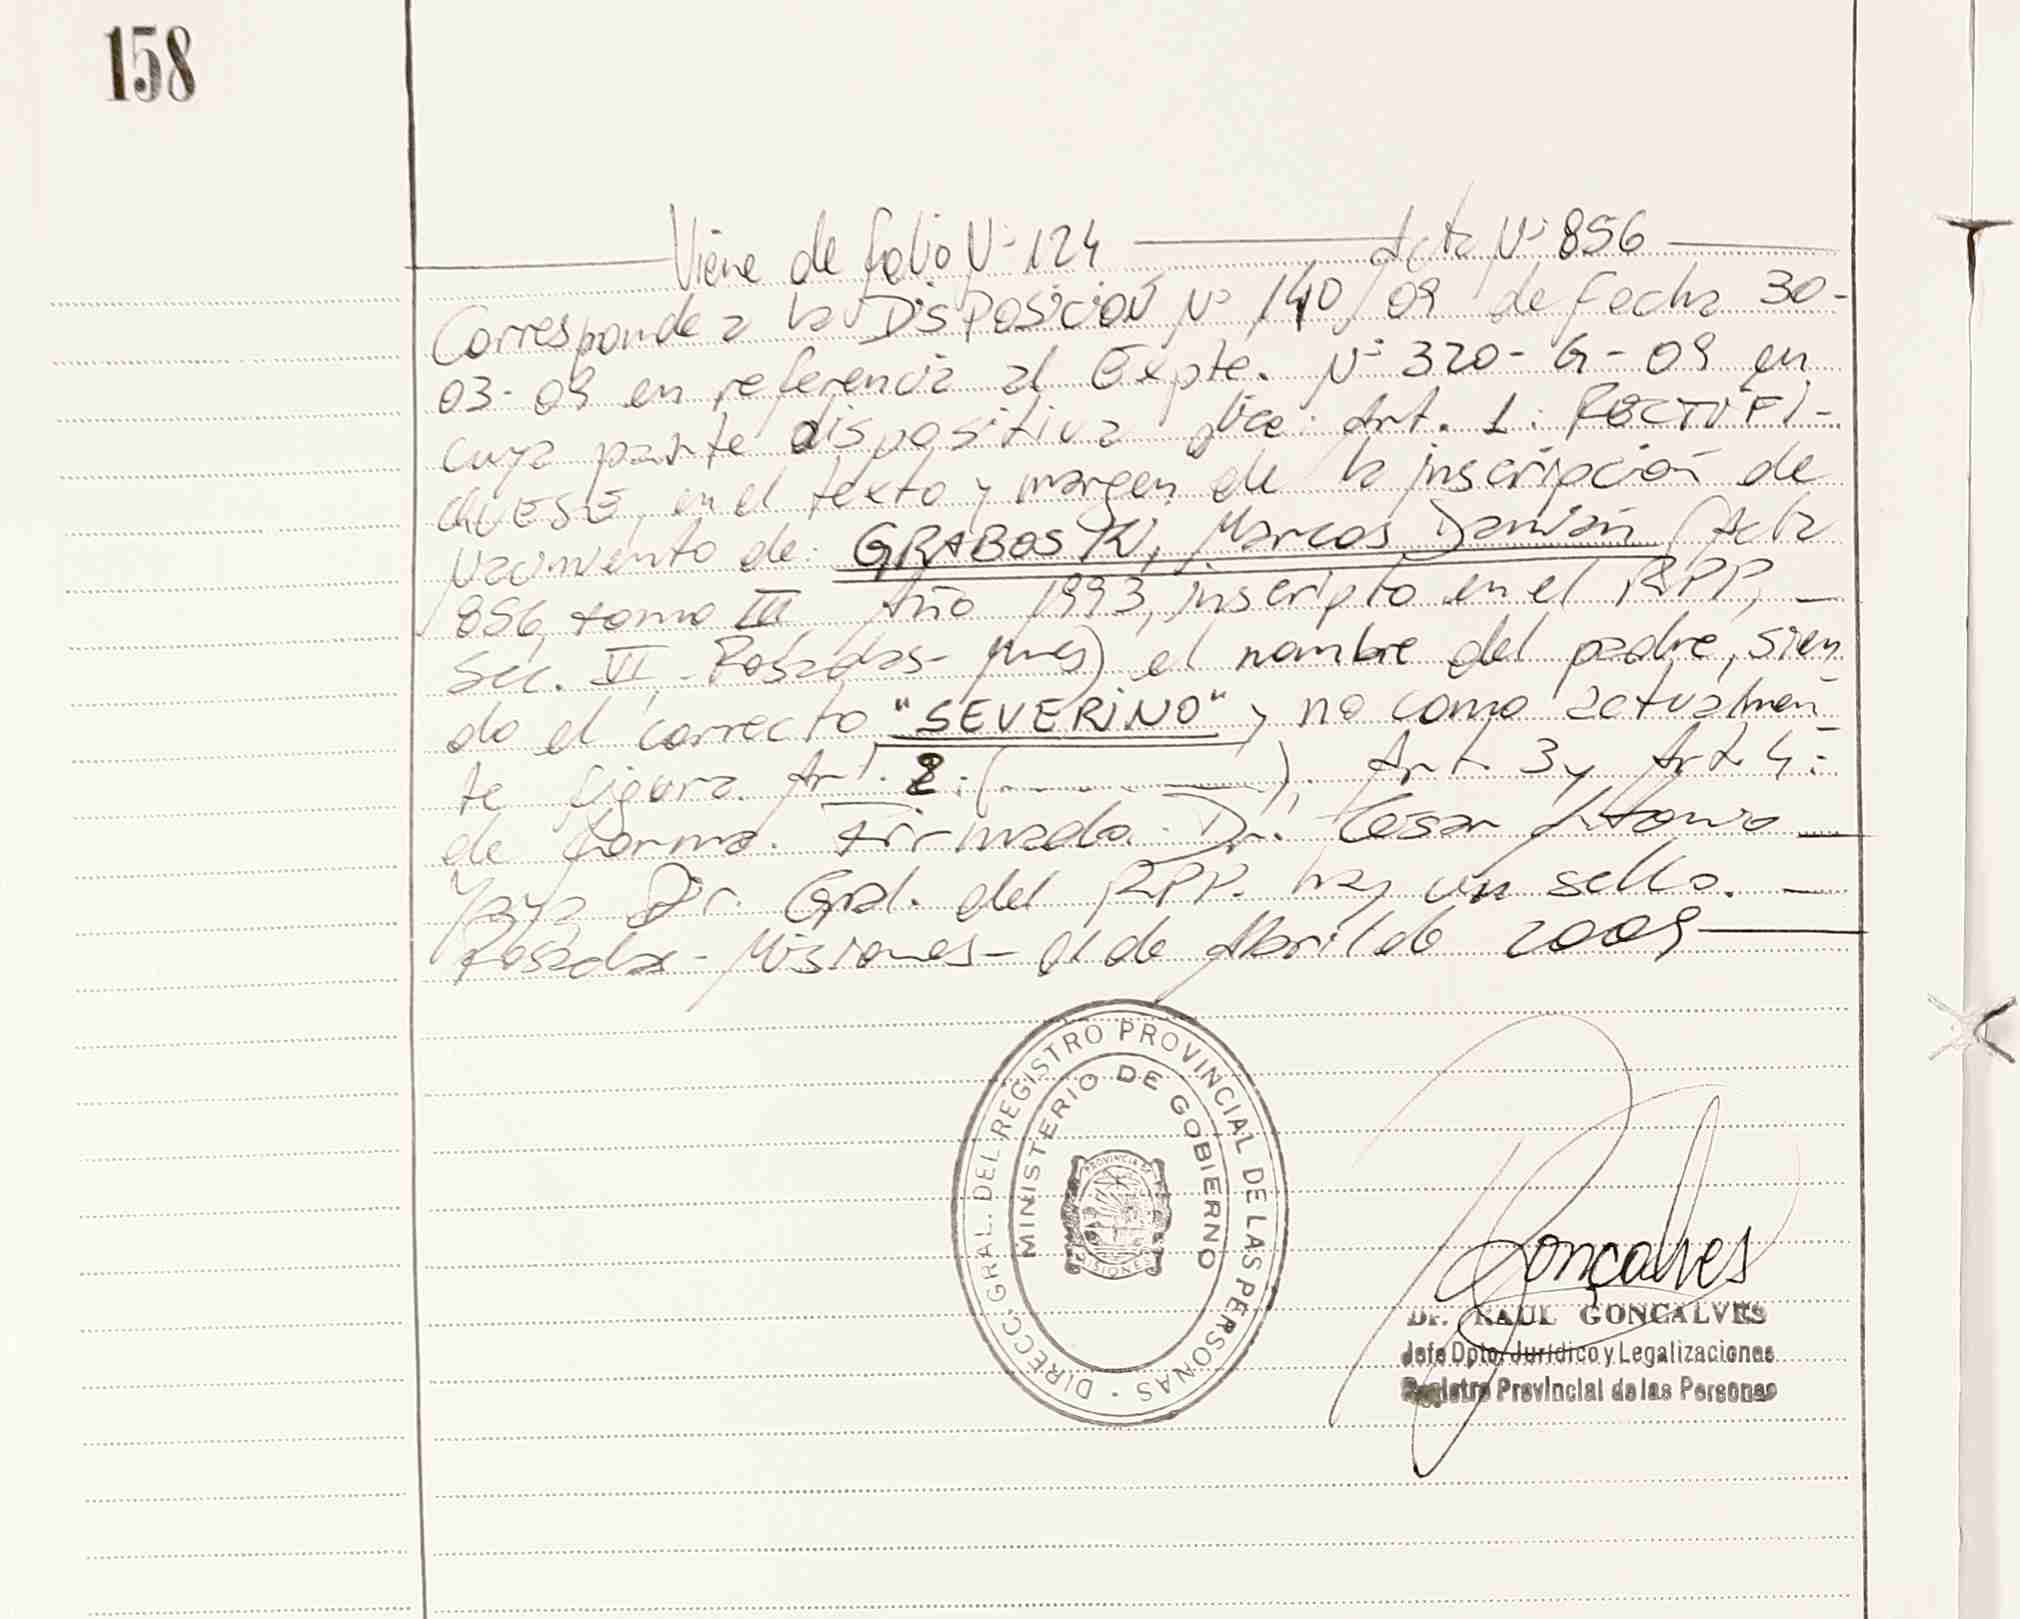 158
Viene de folio Nº 124 Acta Nº 856
Corresponde a la Disposición Nº 140/09 de fecha 30-
03-09 en referencia al Expte. Nº 320-G-09 en
cuya parte dispositiva dice: Art. 1: RECTIFI-
QUESE, en el texto y margen de la inscripción de
nacimiento de: GRABOSKI, Marcos Damián (Acta
856, tomo III Año 1993, inscripto en el RPP,
Sec. VI - Posadas - Mnes) el nombre del padre, sien
do el correcto "SEVERINO" y no como actualmen-
te figura. Art. 2: (..........). Art. 3 y Art. 4:
de forma. Firmado. Dr. César Antonio
Yaya Dir. Gral. del RPP. hay un sello.
Posadas - Misiones - 01 de Abril de 2009
DIRECC. GRAL. DEL REGISTRO PROVINCIAL DE LAS PERSONAS
MINISTERIO DE GOBIERNO
PROVINCIA DE
MISIONES
Gonçalves
Dr. RAUL GONCALVES
Jefe Dpto. Jurídico y Legalizaciones
Registro Provincial de las Personas